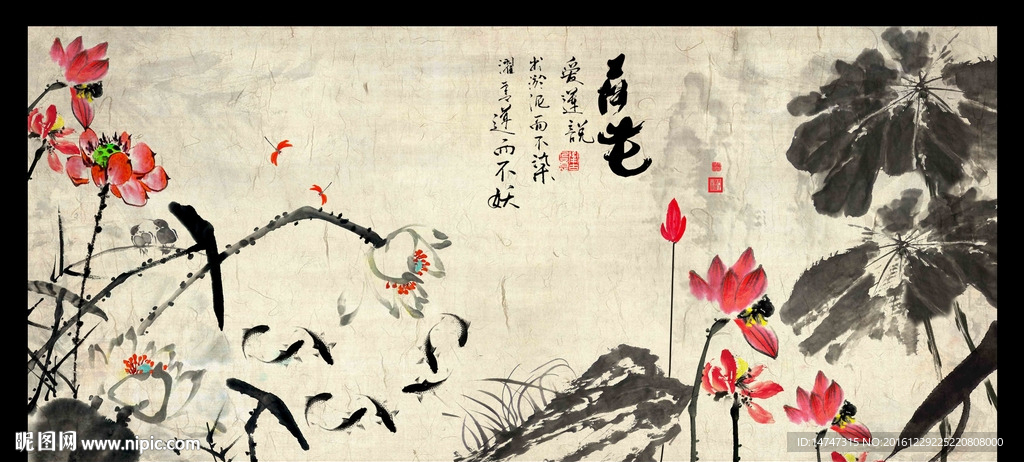 荷花
爱蓮說
出淤泥而不染
濯清蓮而不妖
昵图网 www.nipic.com
ID:14747315 NO:20161229225220808000